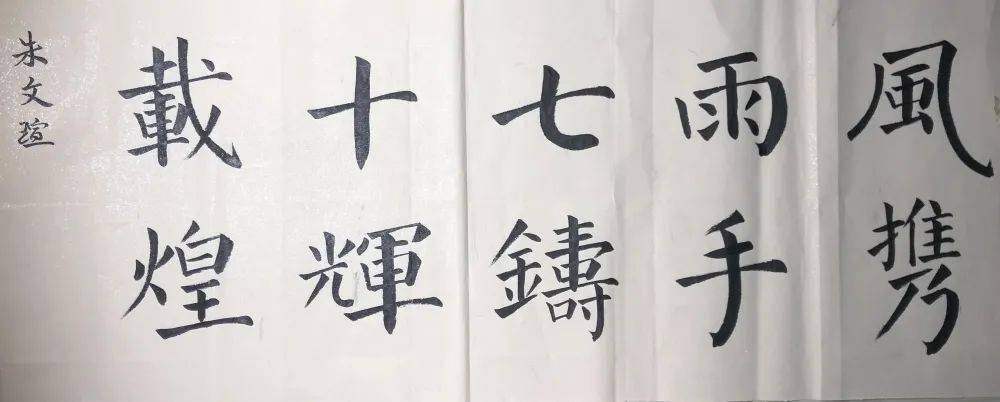 風雨七十載
携手鑄輝煌
朱文瑄